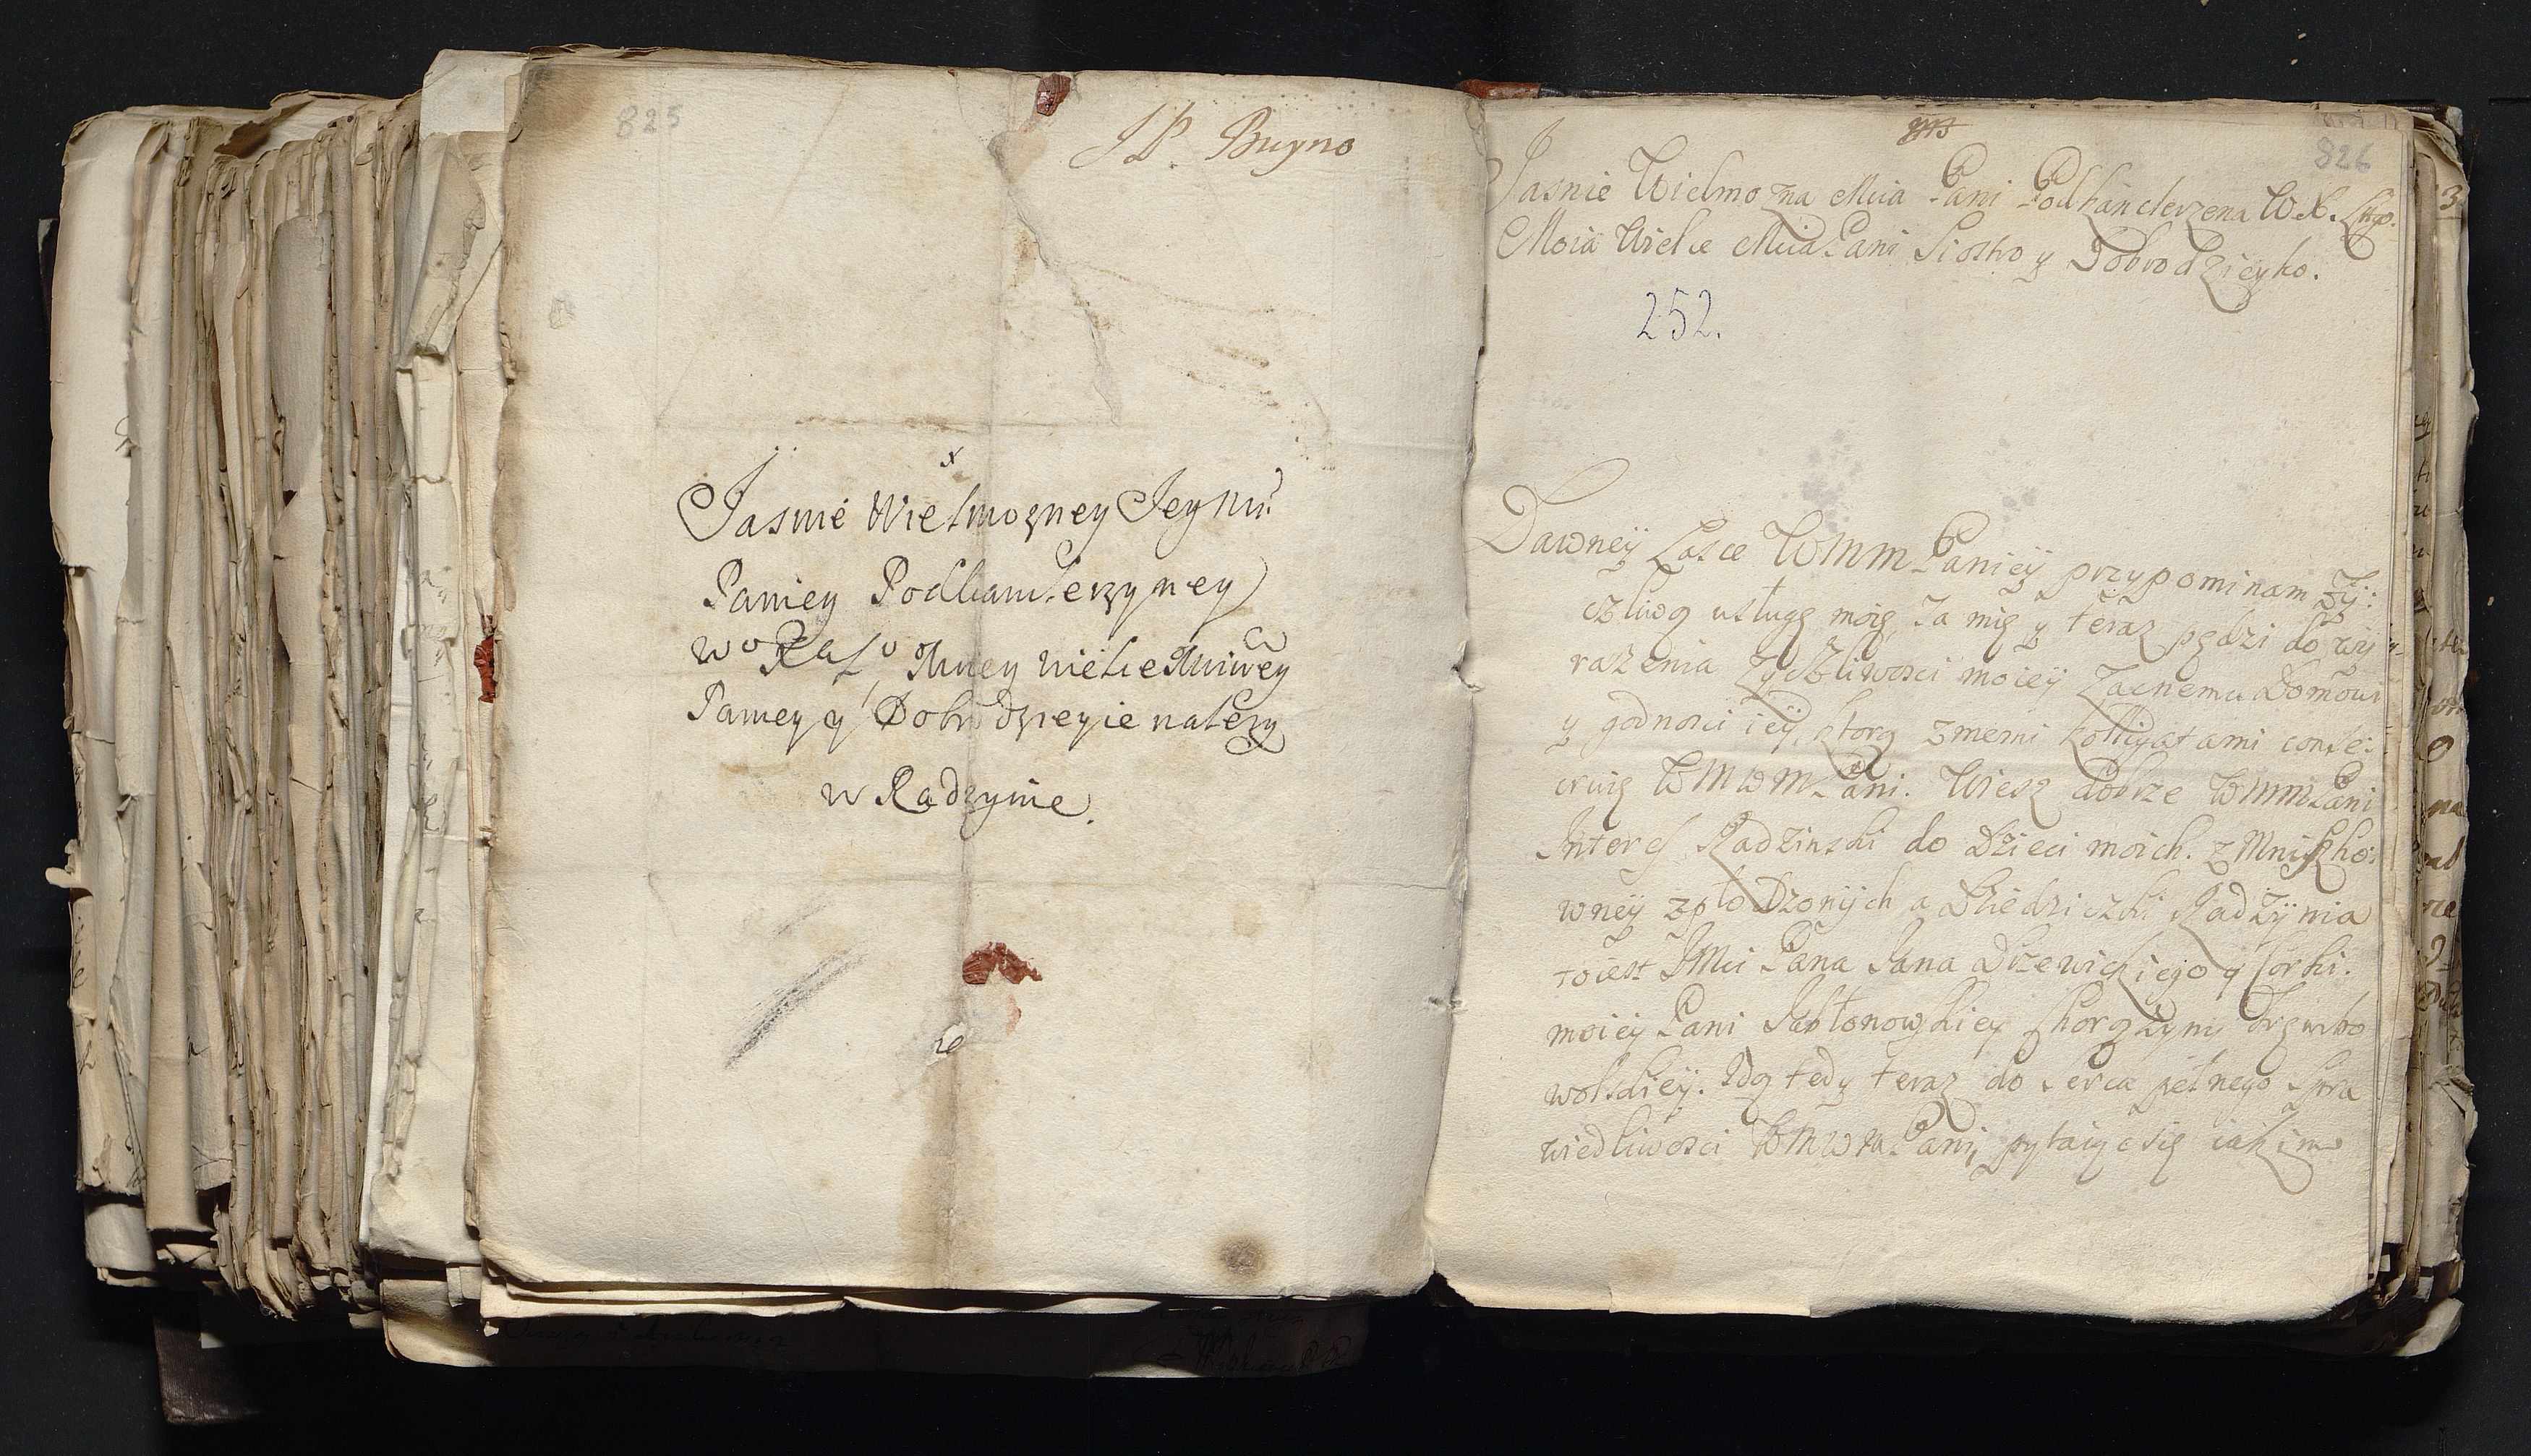 825
JP. Buyno
x
Jasnie Wielmozney Jey
Paniey Podkanclerzyney
Mniey
Paniey y Dobrodzieyce nalezy
w Radzynie.
826
Jasnie Wielmozna Mcia Pani Podkanclerzena W. X. Litgo.
Moia Wielce Mcia Pani Siostro y Dobrodzieyko.
252.
Dawneÿ Łasce WMM Panieÿ przypominam Zÿ:
czliwą usługę moię, Ta mię y teraz pędzi do wÿ
razenia Zyczliwosci moieÿ Zacnemu Domowi
y godnosci ieÿ, ktorą zmemi Kolligatami conse:
cruię WMWMPani. Wiesz dobrze WMMPani
Interes Radzinski do Dzieci moich. z Mniszko:
wneÿ zpłodzonÿch a Dziedziczki Radzÿnia
toiest JMci Pana Jana Drzewickiego y Corki.
moieÿ Pani Jabłonowskiey Chorązÿni
wolskieÿ. Idą tedy teraz do serca pełnego Spra
wiedliwosci WMWMPani, pytaiąc się iakim